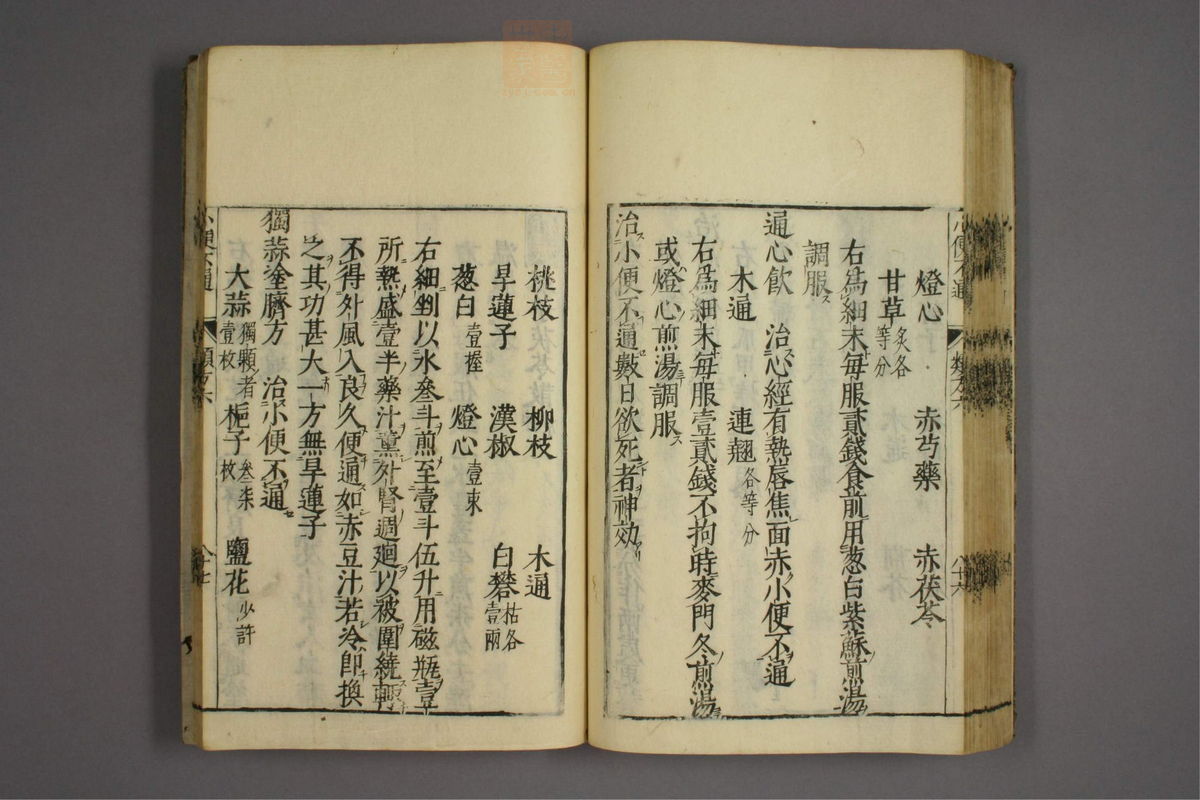 燈心 赤芍藥 赤茯苓
甘草炙各等分
右爲細末毎服貳錢食前用葱白紫蘇煎湯
調服
通心飲 治心經有熱唇焦面赤小便不通
木通 連翹各等分
右爲細末毎服壹貳錢不拘時麥門冬煎湯
或燈心煎湯調服
治小便不通數日欲死者神効
桃枝 柳枝 木通
旱蓮子 漢椒 白礬枯各壹兩
葱白壹握 燈心壹束
右細剉以水叁斗煎至壹斗伍升用磁瓶壹
所熱盛壹半藥汁熏外腎週廻以被圍繞輒
不得外風入良久便通如赤豆汁若冷即換
之其功甚大一方無旱蓮子
獨蒜塗臍方 治小便不通
大蒜獨顆者壹枚 梔子叁柒枚 鹽花少許
小便不通 類方六 八十七